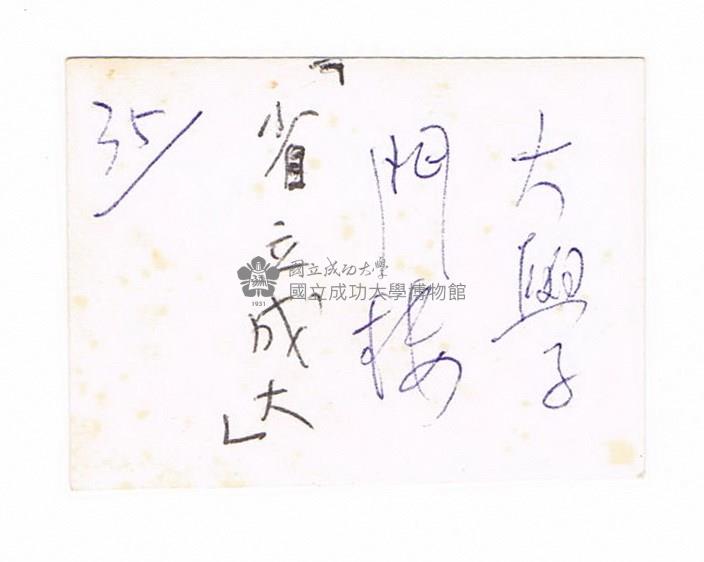 大學
門樓
「省立成大」
35/
國立成功大學
國立成功大學博物館
1931